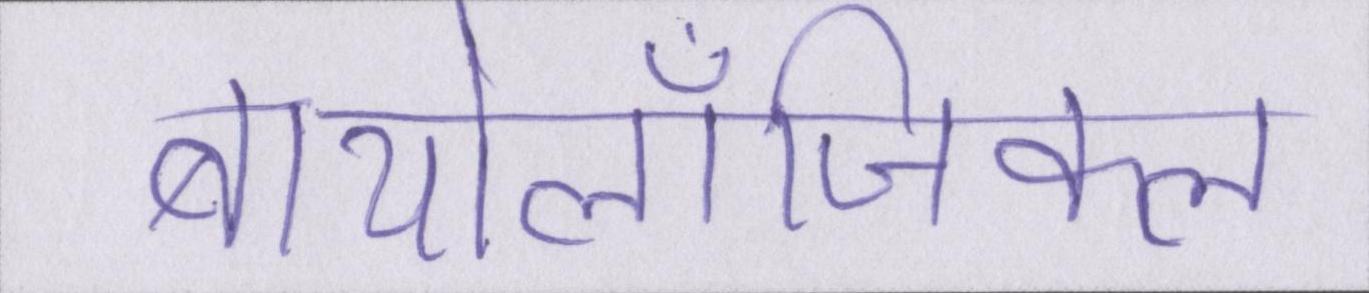 बायोलाँजिकल